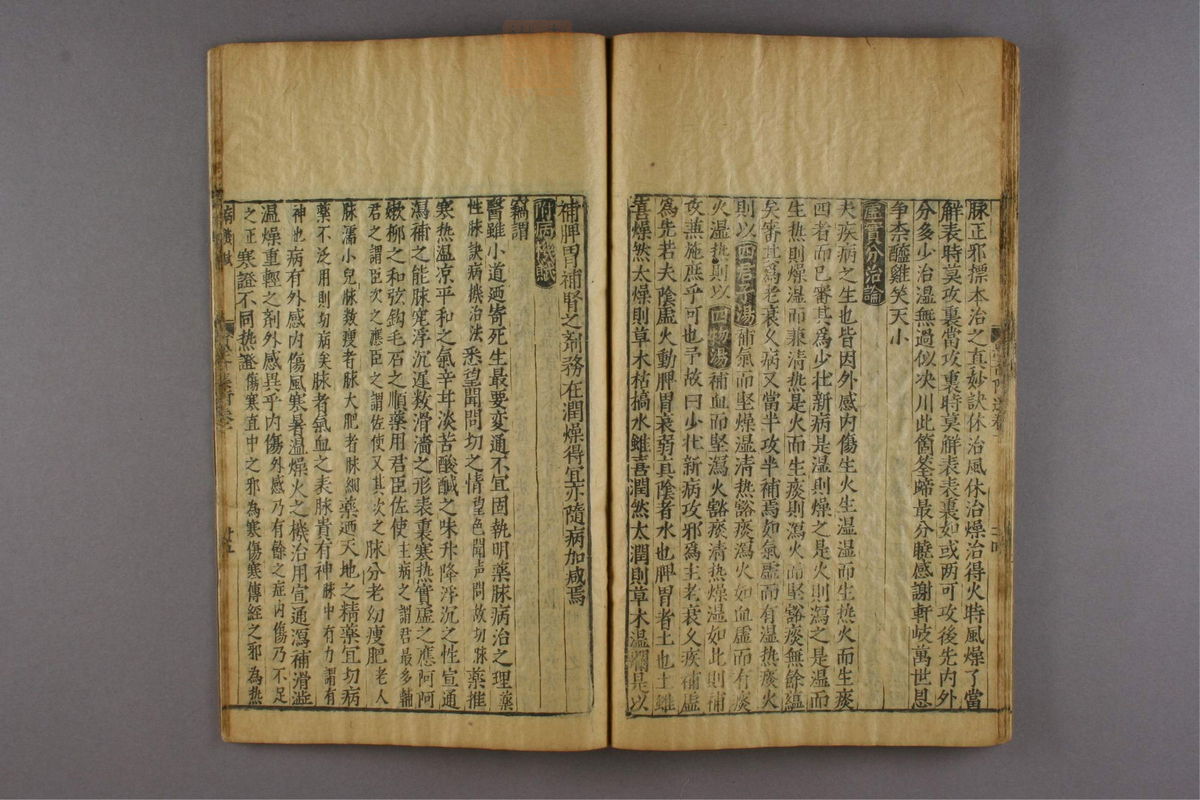 脉正邪標本治之真妙訣休治風休治燥治得火時風燥了當
解表時莫攻裏當攻裏時莫解表表裏如或两可攻後先内外
分多少治温無過似决川此箇筌蹄最分瞭感謝軒岐萬世恩
争柰醯雞笑天小
虛實分治論
夫疾病之生也皆因外感内傷生火生湿湿而生热火而生痰
四者而已審其為少壯新病是湿則燥之是火則瀉之是湿而
生热則燥湿而兼清热是火而生痰則瀉火而豁痰無餘蘊
矣審其為老衰久病又當半攻半補焉如氣虛而有湿热痰火
則以四君子湯補氣而燥湿清热豁痰瀉火如血虛而有痰
火湿热則以四物湯補血而瀉火豁痰清热燥湿如此則補
攻兼施庶乎可也予故曰少壯新病攻邪為主老衰久疾補虛
為先若夫陰虛火動脾胃衰弱真陰者水也脾胃者土也土雖
喜燥然太燥則草木枯槁水雖喜潤然太潤則草木湿爛是以
補脾胃補腎之劑務在潤燥得宜亦隨病加减焉
附病機賦
竊謂
醫雖小道廼寄死生最要変通不宜固執明藥脉病治之理藥
性脉訣病機治法悉望聞問切之情望色聞声問故切脉藥推
寒热温凉平和之氣辛甘淡苦酸醎之味升降浮沉之性宣通
瀉補之能脉究浮沉遅数滑濇之形表裏寒热實虛之應阿阿
嫰柳之和弦鈎毛石之順藥用君臣佐使主病之謂君最多輔
君之謂臣次之應臣之謂佐使又其次之脉分老幼瘦肥老人
脉濡小兒脉数瘦者脉大肥者脉細藥廼天地之精藥宜切病
藥不泛用則切病矣脉者氣血之表脉貴有神脉中有力謂有
神也病有外感内傷風寒暑湿燥火之機治用宣通瀉補滑澁
温燥重輕之劑外感異乎内傷外感乃有餘之症内傷乃不足
之正寒證不同热證傷寒直中之邪為寒傷寒傳經之邪為热